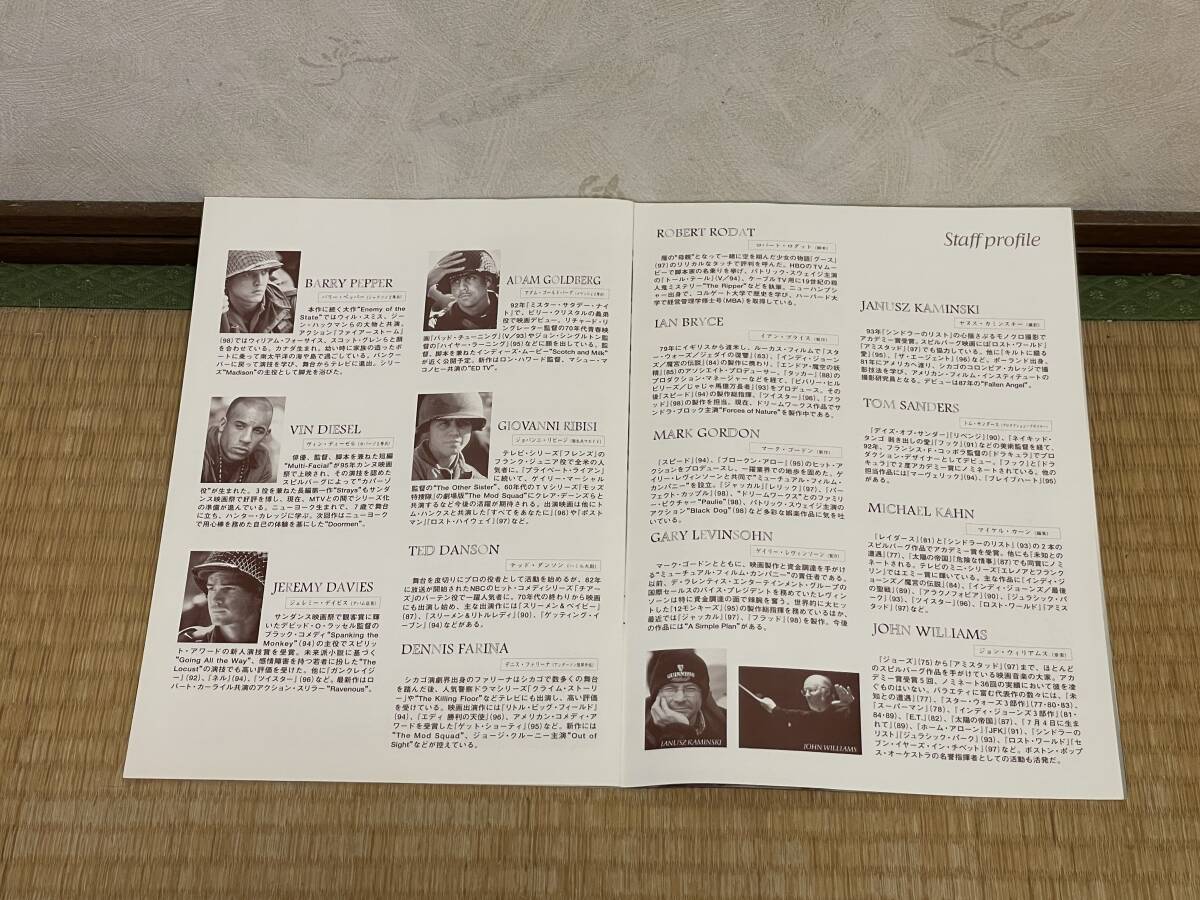 BARRY PEPPER
バリー・ペッパー
本作に続く大作"Enemy of the
State"ではウィル・スミス、ジー
ン・ハックマンらの大物と共演。
アクション「ファイアーストーム」
(98)ではウィリアム・フォーサイス、スコット・グレンらと顔
を合わせている。カナダ生まれ。幼い時に家族の造ったボ
ートに乗って南太平洋の海や島で過ごしている。バンクー
バーに戻って演技を学び、舞台からテレビに進出。シリー
ズ"Madison"の主役として脚光を浴びた。
VIN DIESEL
ヴィン・ディーゼル
俳優、監督、脚本を兼ねた短編
"Multi-Facial"が95年カンヌ映画
祭で上映され、その演技を認めた
スピルバーグによって"カパーゾ
役"が生まれた。3役を兼ねた長編第一作"Strays"もサンダ
ンス映画祭で好評を博し、現在、MTVとの間でシリーズ化
の準備が進んでいる。ニューヨーク生まれで、7歳で舞台
に立ち、ハンター・カレッジに学ぶ。次回作はニューヨーク
で用心棒を務めた自己の体験を基にした"Doormen"。
JEREMY DAVIES
ジェレミー・デイビス
サンダンス映画祭で観客賞に輝
いたデビッド・O・ラッセル監督の
ブラック・コメディ"Spanking the
Monkey"(94)の主役でスピリッ
ト・アワードの新人演技賞を受賞。未来派小説に基づく
"Going All the Way"、感情障害を持つ若者に扮した"The
Locust"の演技でも高い評価を得た。他に「ガンクレイジ
ー」(92)、「ネル」(94)、「ツイスター」(96)など。最新作はロ
バート・カーライル共演のアクション・スリラー"Ravenous"。
ADAM GOLDBERG
アダム・ゴールドバーグ
92年「ミスター・サタデー・ナイ
ト」で、ビリー・クリスタルの義弟
役で映画デビュー。リチャード・リ
ンクレーター監督の70年代青春映
画「バッド・チューニング」(V/93)やジョン・シングルトン監
督の「ハイヤー・ラーニング」(95)などに顔を出している。監
督、脚本を兼ねたインディーズ・ムービー"Scotch and Milk"
が近く公開予定。新作はロン・ハワード監督、マシュー・マ
コノヒー共演の"ED TV"。
GIOVANNI RIBISI
ジョバンニ・リビージ
テレビ・シリーズ「フレンズ」の
フランク・ジュニア役で全米の人
気者に。「プライベート・ライアン」
に続いて、ゲイリー・マーシャル
監督の"The Other Sister"、60年代のTVシリーズ「モッズ
特捜隊」の劇場版"The Mod Squad"にクレア・デーンズらと
共演するなど今後の活躍が期待される。出演映画は他にト
ム・ハンクスと共演した「すべてをあなたに」(96)や「ポスト
マン」「ロスト・ハイウェイ」(97)など。
TED DANSON
テッド・ダンソン
舞台を皮切りにプロの役者として活動を始めるが、82年
に放送が開始されたNBCのヒット・コメディシリーズ「チアー
ズ」のバーテン役で一躍人気者に。70年代の終わりから映画
にも出演し始め、主な出演作には「スリーメン&ベイビー」
(87)、「スリーメン&リトルレディ」(90)、「ゲッティング・イ
ーブン」(94)などがある。
DENNIS FARINA
デニス・ファリーナ
シカゴ演劇界出身のファリーナはシカゴで数多くの舞台
を踏んだ後、人気警察ドラマシリーズ「クライム・ストーリ
ー」や"The Killing Floor"などテレビにも出演し、高い評価
を受けている。映画出演作には「リトル・ビッグ・フィールド」
(94)、「エディ 勝利の天使」(96)、アメリカン・コメディ・ア
ワードを受賞した「ゲット・ショーティ」(95)など。新作には
"The Mod Squad"、ジョージ・クルーニー主演"Out of
Sight"などが控えている。
Staff profile
ROBERT RODAT
ロバート・ロダット(脚本)
雁の"母親"となって一緒に空を組んだ少女の物語「グース」
(97)のリリカルなタッチで評判を呼んだ。HBOのTVムー
ビーで脚本家の名乗りを挙げ、パトリック・スウェイジ主演
の「トール・テール」(V/94)、ケーブルTV用に19世紀の殺
人鬼ミステリー"The Ripper"などを執筆。ニューハンプシ
ャー出身で、コルゲート大学で歴史を学び、ハーバード大
学で経営管理学修士号(MBA)を取得している。
IAN BRYCE
イアン・ブライス(製作)
79年にイギリスから渡米し、ルーカス・フィルムで「スタ
ー・ウォーズ/ジェダイの復讐」(83)、「インディ・ジョーン
ズ/魔宮の伝説」(84)の製作に携わり、「エンドア・魔空の妖
精」(85)のアソシエイト・プロデューサー、「タッカー」(88)の
プロダクション・マネージャーなどを経て、「ビバリー・ヒル
ビリーズ/じゃじゃ馬億万長者」(93)をプロデュース。その
後「スピード」(94)の製作総指揮、「ツイスター」(96)、「フラ
ッド」(98)の製作を担当。現在、ドリームワークス作品でサ
ンドラ・ブロック主演"Forces of Nature"を製作中である。
MARK GORDON
マーク・ゴードン(製作)
「スピード」(94)、「ブロークン・アロー」(96)のヒット・ア
クションをプロデュースし、一躍業界での地歩を固めた。ゲ
イリー・レヴィンソーンと共同で"ミューチュアル・フィルム・
カンパニー"を設立。「ジャッカル」「レリック」(97)、「パー
フェクト・カップル」(98)、"ドリームワークス"とのファミリ
ー・ピクチャー"Paulie"(98)、パトリック・スウェイジ主演の
アクション"Black Dog"(98)など多彩な娯楽作品に気を吐
いている。
GARY LEVINSOHN
ゲイリー・レヴィンソーン(製作)
マーク・ゴードンとともに、映画製作と資金調達を手がけ
る"ミューチュアル・フィルム・カンパニー"の責任者である。
以前、デ・ラレンティス・エンターテインメント・グループの
国際セールスのバイス・プレジデントを務めていたレヴィン
ソーンは特に資金調達の面で辣腕を奮う。世界的に大ヒッ
トした「12モンキーズ」(95)の製作総指揮を務めているほか、
最近では「ジャッカル」(97)、「フラッド」(98)を製作。今後
の作品には"A Simple Plan"がある。
GUINNESS
JANUSZ KAMINSKI
JOHN WILLIAMS
JANUSZ KAMINSKI
ヤヌス・カミンスキー(撮影)
93年「シンドラーのリスト」の心揺さぶるモノクロ撮影で
アカデミー賞受賞。スピルバーグ映画には「ロスト・ワールド」
「アミスタッド」(97)でも協力している。他に「キルトに綴る
愛」(95)、「ザ・エージェント」(96)など。ポーランド出身。
81年にアメリカへ渡り、シカゴのコロンビア・カレッジで撮
影技法を学び、アメリカン・フィルム・インスティチュートの
撮影研究員となる。デビューは87年の"Fallen Angel"。
TOM SANDERS
トム・サンダース(プロダクション・デザイナー)
「デイズ・オブ・サンダー」「リベンジ」(90)、「ネイキッド・
タンゴ 裸き出しの愛」「フック」(91)などの美術監督を経て、
92年、フランシス・F・コッポラ監督の「ドラキュラ」でプロ
ダクション・デザイナーとしてデビュー。「フック」と「ドラ
キュラ」で2度アカデミー賞にノミネートされている。他の
担当作品には「マーヴェリック」(94)、「ブレイブハート」(95)
がある。
MICHAEL KAHN
マイケル・カーン(編集)
「レイダース」(81)と「シンドラーのリスト」(93)の2本の
スピルバーグ作品でアカデミー賞を受賞。他にも「未知との
遭遇」(77)、「太陽の帝国」「危険な情事」(87)でも同賞にノミ
ネートされる。テレビのミニ・シリーズ「エレノアとフランク
リン」ではエミー賞に輝いている。主な作品に「インディ・ジ
ョーンズ/魔宮の伝説」(84)、「インディ・ジョーンズ/最後
の聖戦」(89)、「アラクノフォビア」(90)、「ジュラシック・パ
ーク」(93)、「ツイスター」(96)、「ロスト・ワールド」「アミス
タッド」(97)など。
JOHN WILLIAMS
ジョン・ウィリアムス(音楽)
「ジョーズ」(75)から「アミスタッド」(97)まで、ほとんど
のスピルバーグ作品を手がけている映画音楽の大家。アカ
デミー賞受賞5回、ノミネート36回の実績において彼を凌
ぐものはいない。バラエティに富む代表作の数々には、「未
知との遭遇」(77)、「スター・ウォーズ3部作」(77・80・83)、
「スーパーマン」(78)、「インディ・ジョーンズ3部作」(81・
84・89)、「E.T.」(82)、「太陽の帝国」(87)、「7月4日に生ま
れて」(89)、「ホーム・アローン」「JFK」(91)、「シンドラーの
リスト」「ジュラシック・パーク」(93)、「ロスト・ワールド」「セ
ブン・イヤーズ・イン・チベット」(97)など。ボストン・ポップ
ス・オーケストラの名誉指揮者としての活動も活発だ。